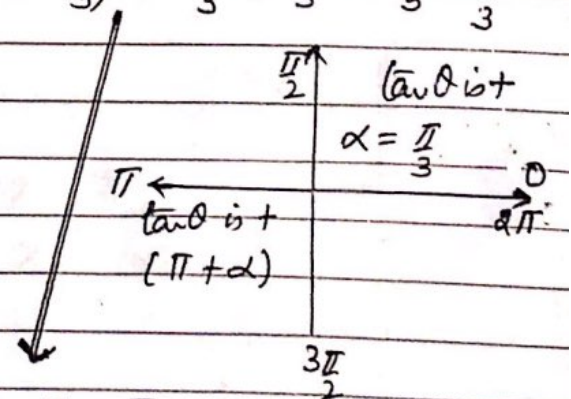 3) 3 3 3 3
π/2 tanθ is +
α = π/3
π 0
tanθ is + 2π
(π + α)
3π/2